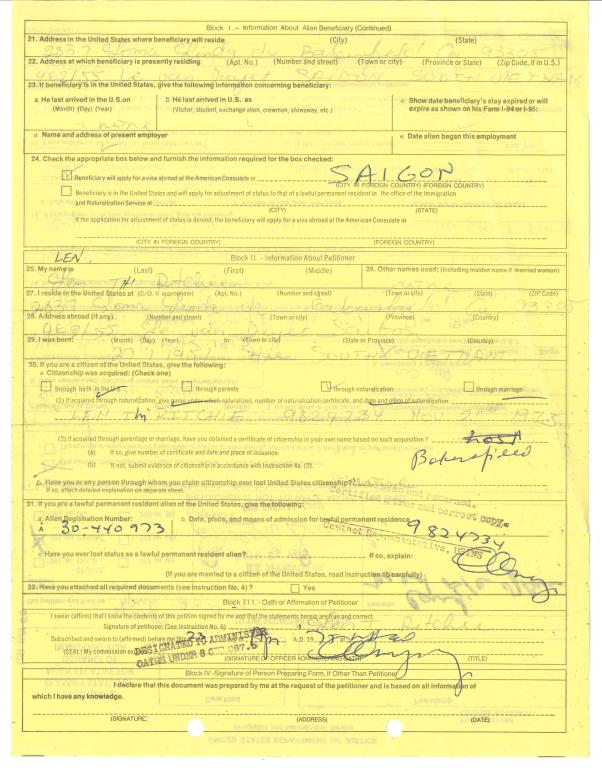 Block I. - Information About Alien Beneficiary (Continued)
21. Address in the United States where beneficiary will reside (City) (State)
2337 Loma Linda dr Bakersfield Ca 93305
22. Address at which beneficiary is presently residing (Apt. No.) (Number and street) (Town or city) (Province or State) (Zip Code, if in U.S.)
468/55 Le van Duyet SAIGON SOUTH VIETNAM
23. If beneficiary is in the United States, give the following information concerning beneficiary:
a. He last arrived in the U.S. on (Month) (Day) (Year)
b. He last arrived in U.S. as (Visitor, student, exchange alien, crewman, stowaway, etc.)
c. Show date beneficiary's stay expired or will expire as shown on his Form I-94 or I-95:
none
d. Name and address of present employer
e. Date alien began this employment
24. Check the appropriate box below and furnish the information required for the box checked:
Beneficiary will apply for a visa abroad at the American Consulate in SAIGON
(CITY IN FOREIGN COUNTRY) (FOREIGN COUNTRY)
Beneficiary is in the United States and will apply for adjustment of status to that of a lawful permanent resident in the office of the Immigration
and Naturalization Service at
(CITY) (STATE)
If the application for adjustment of status is denied, the beneficiary will apply for a visa abroad at the American Consulate in
(CITY IN FOREIGN COUNTRY) (FOREIGN COUNTRY)
LEN
Block II. - Information About Petitioner
25. My name is (Last) (First) (Middle)
26. Other names used: (Including maiden name if married woman)
THI Ritchie
none
27. I reside in the United States at (C/O, if appropriate) (Apt. No.) (Number and street) (Town or city) (State) (ZIP Code)
2337 Loma Linda dr
28. Address abroad (if any). (Number and street) (Town or city) (Province) (Country)
468/55 Le van Duyet
29. I was born: (Month) (Day) (Year) In (Town or city) (State or Province) (Country)
SOUTH VIETNAM
30. If you are a citizen of the United States, give the following:
a. Citizenship was acquired: (Check one)
through birth in the U.S. through parents through naturalization through marriage
(1) If acquired through naturalization, give name under which naturalized, number of naturalization certificate, and date and place of naturalization:
LEN THI RITCHIE 9824734 NOV 1973
(2) If acquired through parentage or marriage, have you obtained a certificate of citizenship in your own name based on such acquisition?
Bakersfield
(a) If so, give number of certificate and date and place of issuance:
(b) If not, submit evidence of citizenship in accordance with Instruction 4a. (2).
b. Have you or any person through whom you claim citizenship ever lost United States citizenship?
If so, attach detailed explanation on separate sheet.
31. If you are a lawful permanent resident alien of the United States, give the following:
a. Alien Registration Number:
b. Date, place, and means of admission for lawful permanent residence
A 30-440973
9824734
c. Have you ever lost status as a lawful permanent resident alien? If so, explain:
(If you are married to a citizen of the United States, read Instruction 1b carefully)
32. Have you attached all required documents (see instruction No. 4)? Yes
Block III. - Oath or Affirmation of Petitioner
I swear (affirm) that I know the contents of this petition signed by me and that the statements herein are true and correct.
Signature of petitioner (See Instruction No. 6) Ritchie
Subscribed and sworn to (affirmed) before me this 23 day of A.D. 19
(SEAL) My commission
DESIGNATED TO ADMINISTER
OATHS UNDER 8 CFR 287.5
(SIGNATURE OF OFFICER ADMINISTERING OATH) (TITLE)
Block IV. - Signature of Person Preparing Form, If Other Than Petitioner
I declare that this document was prepared by me at the request of the petitioner and is based on all information of
which I have any knowledge.
(SIGNATURE) (ADDRESS) (DATE)